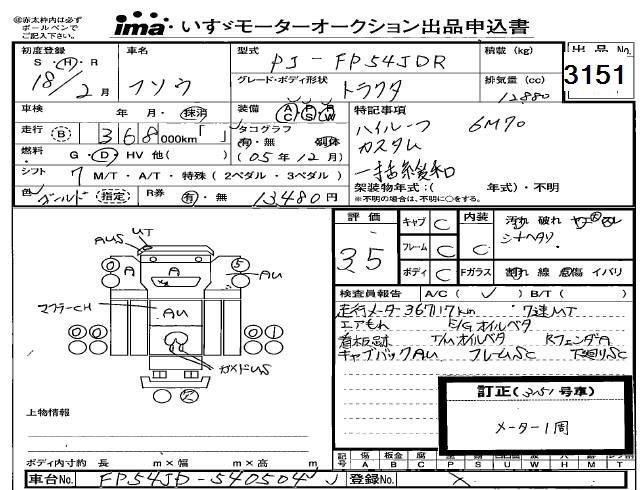 ㊟赤太枠内は必ず
ボールペンで
ご記入下さい。
ima いすゞモーターオークション出品申込書
初度登録 S・H・R 18/2月
車名 フソウ
型式 PJ-FP54JDR
グレード・ボディ形状 トラクタ
積載 (kg)
排気量 (cc) 12880
出品No.
3151
車検 年・月・抹消
装備 AC PS PW
特記事項
ハイルーフ 6M70
カスタム
一括緩和
走行 B 368000km「 」
タコグラフ 有・無 別体
(05年12月)
燃料 G・D・HV 他( )
シフト 7 M/T・A/T・特殊(2ペダル・3ペダル)
架装物年式:( 年式)・不明
※不明の場合は、不明に○をする。
色 ゴールド 指定
R券 有・無 13480円
評価 35
キャブ C
フレーム C
ボディ C
内装 C
Fガラス
汚れ 破れ
シートヘタリ
割れ 線 点傷 イバリ
検査員報告 A/C( ✓ ) B/T( )
走行メーター367117km 7速MT
エアもれ E/Gオイルベタ
看板跡 T/Mオイルベタ RフェンダA
キャブバックAU フレームSC 下廻りSC
AUS UT
0 A A 5 AU
マフラーCH AU
0 0 1
ガメドUS
訂正(3151号車)
メーター1周
上物情報
ボディ内寸約 長 m×幅 m×高 m
記号 傷A 板金B 腐C P S U W H X M T
車台No. FP54JD-540504
登録No.